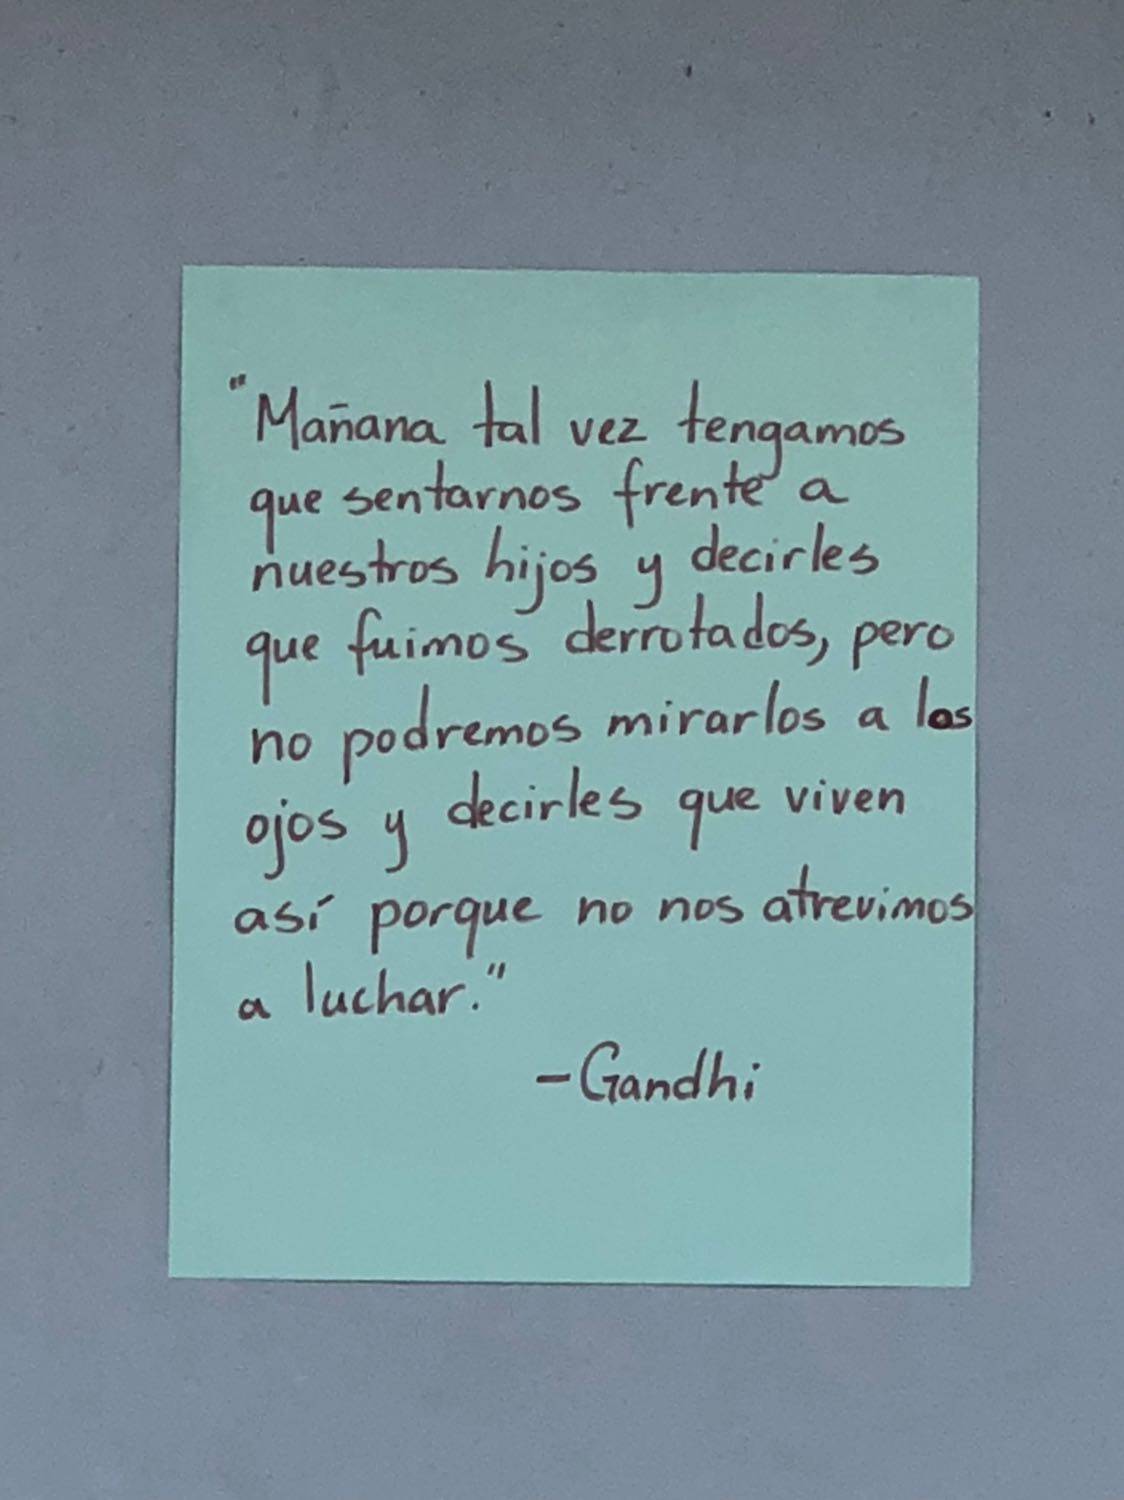 "Mañana tal vez tengamos
que sentarnos frente a
nuestros hijos y decirles
que fuimos derrotados, pero
no podremos mirarlos a los
ojos y decirles que viven
así porque no nos atrevimos
a luchar."
-Gandhi